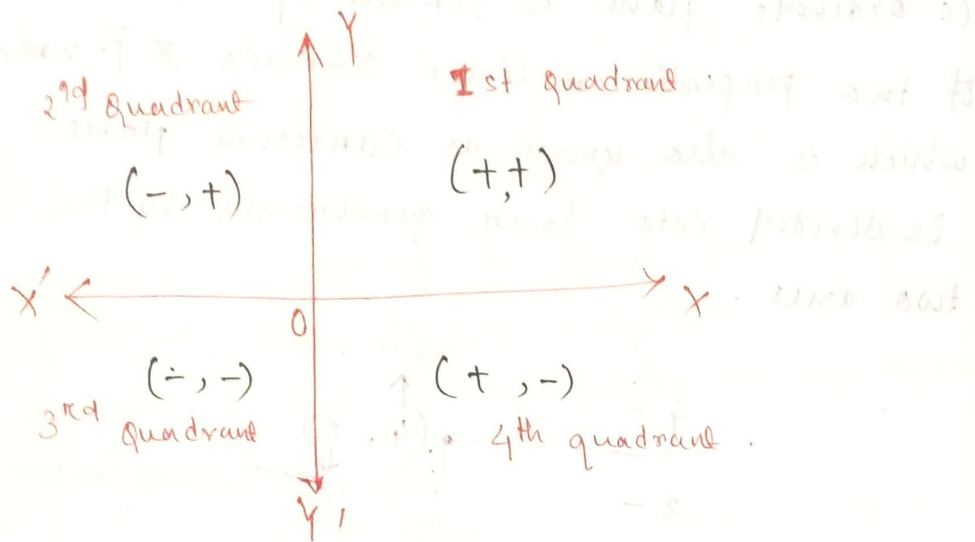 Y
2nd Quadrant
1st quadrant
(-,+)
(+,+)
X'
X
O
(-,-)
(+,-)
3rd Quadrant
4th quadrant.
Y'